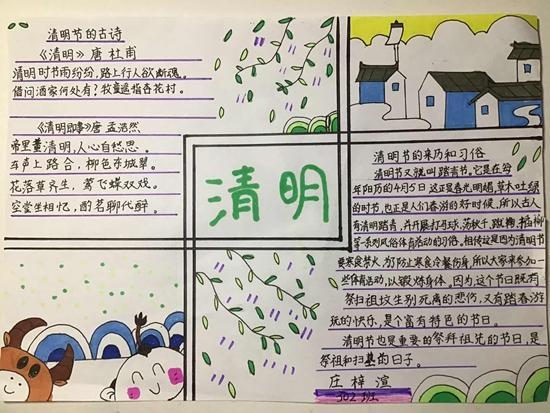 清明节的古诗
《清明》唐 杜甫
清明时节雨纷纷，路上行人欲断魂。
借问酒家何处有？牧童遥指杏花村。
《清明即事》唐 孟浩然
帝里重清明，人心自愁思。
车声上路合，柳色东城翠。
花落草齐生，莺飞蝶双戏。
空堂坐相忆，酌茗聊代醉。
清明
清明节的来历和习俗
清明节又就叫踏青节。它是在每
年阳历的4月5日 这正是春光明媚，草木吐绿
的时节，也正是人们春游的好时候，所以古人
有清明踏青，并开展打马球、荡秋千、蹴鞠、插柳
等一系列风俗体育活动的习俗，相传这是因为清明节
要寒食禁火，为了防止寒食冷餐伤身，所以大家来参加一
些体育活动，以锻炼身体，因为，这个节日既有
祭扫祖坟生别死离的悲伤，又有踏春游
玩的快乐，是个富有特色的节日。
清明节也是重要的祭拜祖先的节日，是
祭祖和扫墓的日子。
庄梓渲
302班